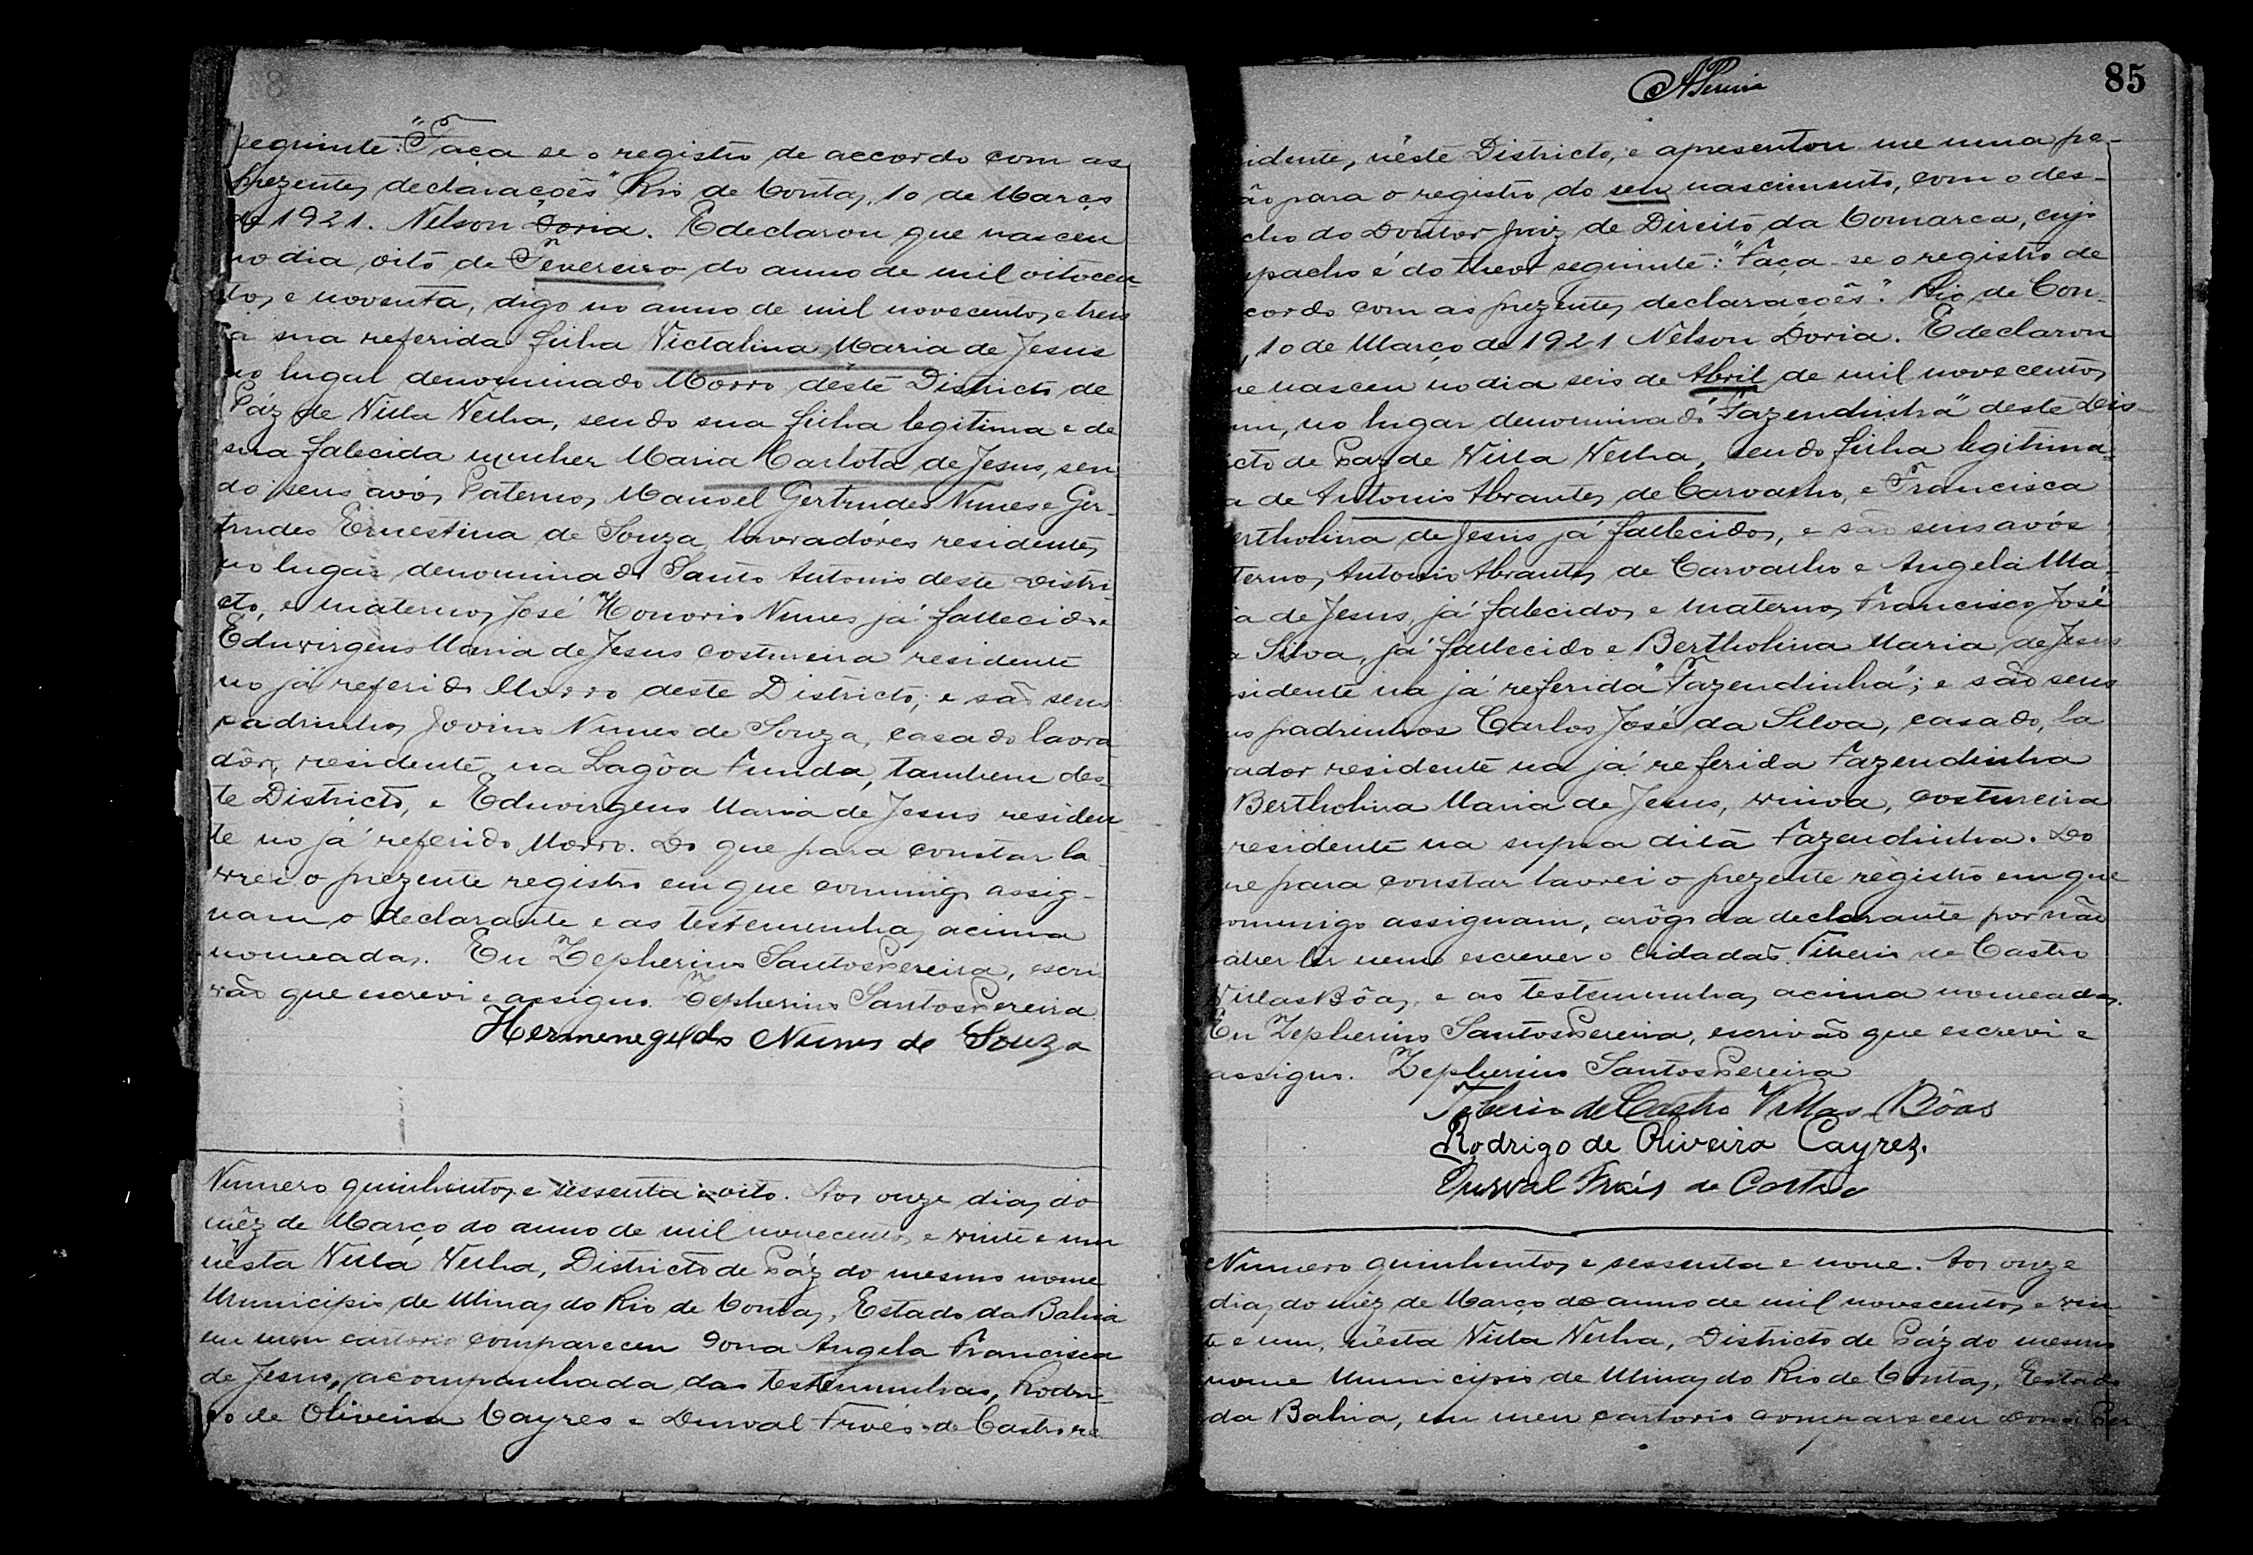 seguinte: "Faça se o registro de accordo com as
prezentes declarações" Rio de Contas, 10 de Março
de 1921. Nelson Doria. E declarou que nasceu
no dia oito de Fevereiro do anno de mil oitocen
tos e noventa, digo no anno de mil novecentos e tres
a sua referida filha Victalina Maria de Jesus
no lugal denominado Morro dêste Districto de
Páz de Villa Velha, sendo sua filha legitima e de
sua falecida mulher Maria Carlota de Jesus, sen
do seus avós Paternos Manoel Gertrudes Nunes e Ger-
trudes Ernestina de Souza, lavradôres residentes
no lugar denominado Santo Antonio deste Distri-
cto, e maternos José Honorio Nunes já fallecido e
Eduvirgens Maria de Jesus costureira residente
no já referido Morro deste Districto; e são seus
padrinhos Jovino Nunes de Souza, casado lavra
dôr, residente na Lagôa Funda, tambem des-
te Districto, e Eduvirgens Maria de Jesus residen
te no já referido Morro. Do que para constar la
vrei o prezente registro em que commigo assig-
nam o declarante e as testemunhas acima
nomeadas. Eu Zepherino Santos Pereira, escri
vão que escrevi e assigno. Zepherino Santos Pereira
Hermenegildo Nunes de Souza
Numero quinhentos e sessenta e oito. Aos onze dias do
mêz de Março do anno de mil novecentos e vinte e um
nésta Villa Velha, Districto de Páz do mesmo nome
Municipio de Minas do Rio de Contas, Estado da Bahia
em meu cartorio compareceu Dona Angela Francisca
de Jesus, acompanhada das testemunhas, Rodri-
go de Oliveira Cayres e Durval Fróes de Castro re
85
idente, néste Districto, e apresentou me uma pe-
ão para o registro do seu nascimento, com o des-
cho do Doutor Juiz de Direito da Comarca, cujo
pacho é do theor seguinte: "Faça-se o registro de
cordo com as prezentes declarações". Rio de Con-
, 10 de Março de 1921 Nelson Doria. E declarou
ue nasceu no dia seis de Abril de mil novecentos
um, no lugar denominado "Fazendinha" deste Dis-
icto de Paz de Villa Velha, sendo filha legitima
a de Antonio Abrantes de Carvalho, e Francisca
ertholina de Jesus já fallecidos, e são seus avós
ternos Antonio Abrantes de Carvalho e Angela Ma-
ia de Jesus, já falecidos e maternos Francisco José
a Silva, já fallecido e Bertholina Maria de Jesus
sidente na já referida "Fazendinha"; e são seus
us padrinhos Carlos José da Silva, casado, la
rador residente na já referida Fazendinha
Bertholina Maria de Jesus, viuva, costureira
residente na supra dita Fazendinha. Do
ue para constar lavrei o prezente registro em que
ommigo assignam, arôgo da declarante por não
aber ler nem escrever o Cidadão Tiberio de Castro
Villas Bôas, e as testemunhas acima nomeadas.
Eu Zepherino Santos Pereira, escrivão que escrevi e
assigno. Zepherino Santos Pereira
Tiberio de Castro Villas Bôas
Rodrigo de Oliveira Cayres.
Durval Fróis de Castro
Numero quinhentos e sessenta e nove. Aos onze
dias do mêz de Março do anno de mil novecentos e vin
te e um, nésta Villa Velha, Districto de Páz do mesmo
nome Municipio de Minas do Rio de Contas, Estado
da Bahia, em meu cartorio compareceu Dona